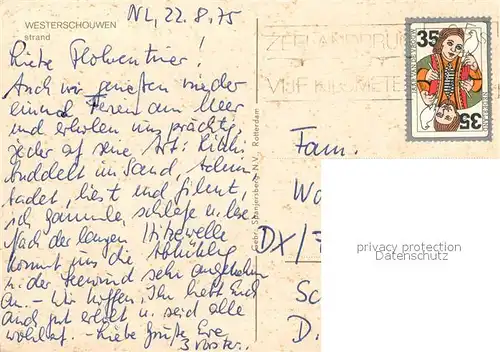 WESTERSCHOUWEN
strand
NL, 22.8.75
Liebe Florentiner!
Auch wir genießen wieder
einmal Ferien am Meer
und erholen uns prächtig,
jeder auf seine Art:
buddelt im Sand,
badet, liest und filmt,
ich sammle, schlafe u. lese.
Nach der langen Hitzewelle
kommt uns die Abkühlung
u. der Seewind sehr angenehm
an. - Wir hoffen, Ihr habt Euch
auch gut erholt u. seid alle
wohlauf. - Liebe Grüße Eure
ZEELANDBRUG
VIJF KILOMETER
35
35
Gebr. Spanjersberg N.V., Rotterdam
Fam.
DX/7
D.
privacy protection
Datenschutz